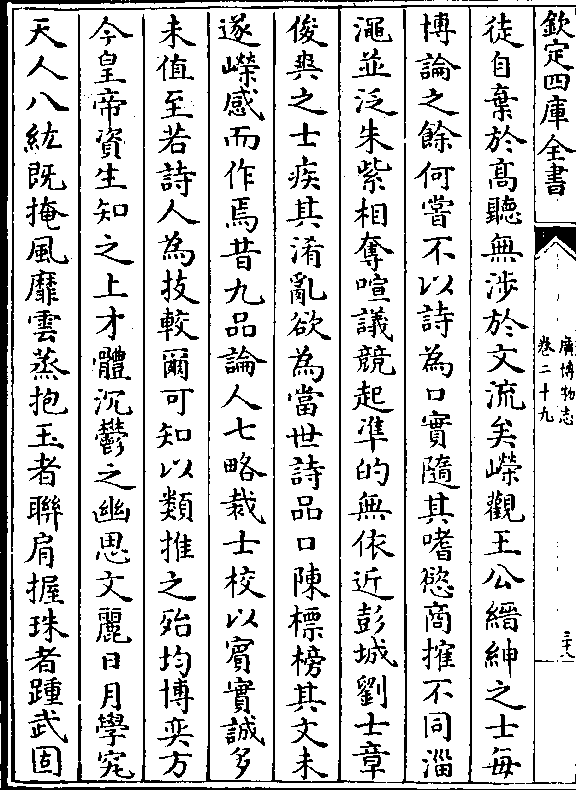 欽定四庫全書
廣博物志
卷二十九
三十八
徒自棄於髙聽無涉於文流矣嶸觀王公縉紳之士每
博論之餘何嘗不以詩為口實隨其嗜慾商搉不同淄
澠並泛朱紫相奪喧議競起凖的無依近彭城劉士章
俊爽之士疾其淆亂欲為當世詩品口陳標榜其文未
遂嶸感而作焉昔九品論人七略裁士校以賓實誠多
未值至若詩人為技較爾可知以類推之殆均博奕方
今皇帝資生知之上才體沉鬱之幽思文麗日月學究
天人八紘既掩風靡雲蒸抱玉者聯肩握珠者踵武固